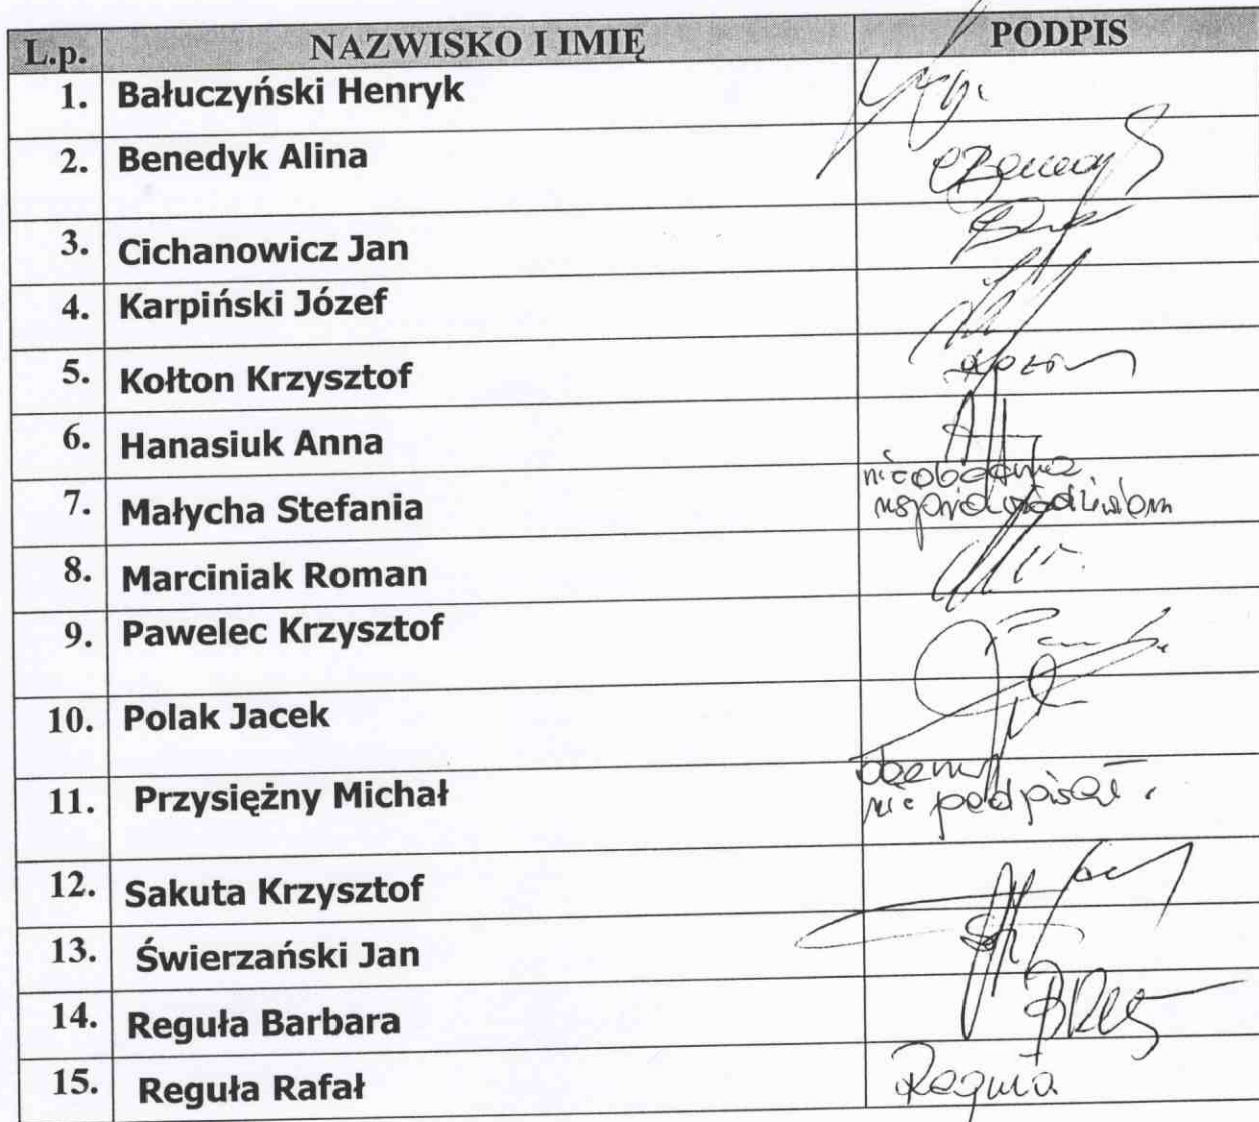 L.p. NAZWISKO I IMIĘ PODPIS
1. Bałuczyński Henryk
2. Benedyk Alina
3. Cichanowicz Jan
4. Karpiński Józef
5. Kołton Krzysztof
6. Hanasiuk Anna
nieobecna
7. Małycha Stefania
8. Marciniak Roman
9. Pawelec Krzysztof
10. Polak Jacek
obecny
11. Przysiężny Michał
nie podpisał.
12. Sakuta Krzysztof
13. Świerzański Jan
14. Reguła Barbara
15. Reguła Rafał Reguła